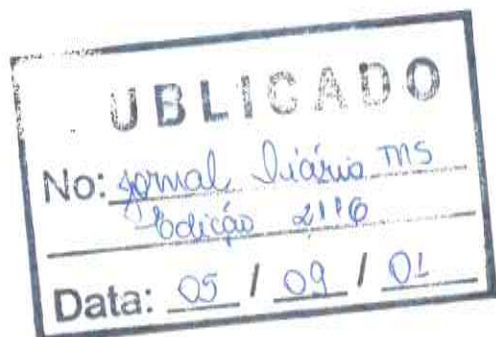 UBLICADO
No: Jornal Diário MS
Edição 2116
Data: 05 / 09 / 01